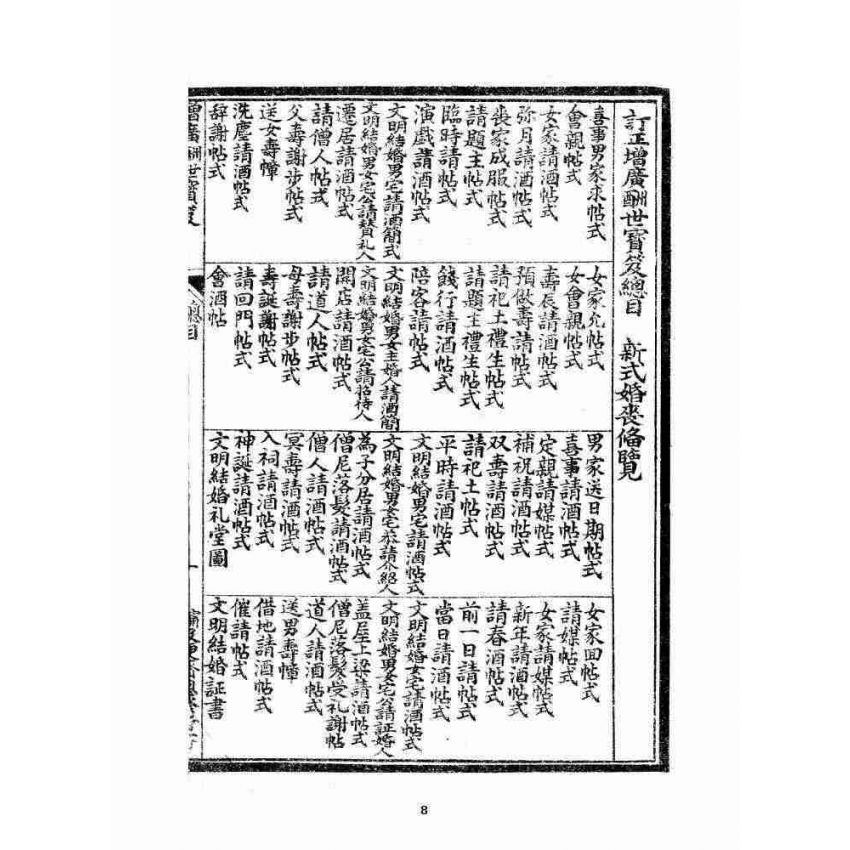 訂正增廣酬世寶笈總目 新式婚喪俻覽
喜事男家求帖式 女家允帖式 男家送日期帖式 女家回帖式
會親帖式 女會親帖式 喜事請酒帖式 請媒帖式
女家請酒帖式 壽辰請酒帖式 定親請媒帖式 女家請媒帖式
弥月請酒帖式 預做壽請帖式 補祝請酒帖式 新年請酒帖式
喪家成服帖式 請祀土禮生帖式 双壽請酒帖式 請春酒帖式
請題主帖式 請題主禮生帖式 請祀土帖式 前一日請帖式
臨時請帖式 餞行請酒帖式 平時請酒帖式 當日請酒帖式
演戲請酒帖式 陪客請帖式 文明結婚男宅請酒帖式 文明結婚女宅請酒帖式
文明結婚男宅請酒簡式 文明結婚男女主婚人請酒簡 文明結婚男女宅恭請介紹人 文明結婚男女宅公請証婚人
文明結婚男女宅公請賛礼人 文明結婚男女宅公請招待人 為子分居請酒帖式 盖屋上梁請酒帖式
遷居請酒帖式 開店請酒帖式 僧尼落髮請酒帖式 僧尼落髮受礼謝帖
請僧人帖式 請道人帖式 僧人請酒帖式 道人請酒帖式
父壽謝步帖式 母壽謝步帖式 冥壽請酒帖式 送男壽幛
送女壽幛 壽誕謝帖式 入祠請酒帖式 借地請酒帖式
洗塵請酒帖式 請回門帖式 神誕請酒帖式 催請帖式
辞謝帖式 會酒帖 文明結婚礼堂圖 文明結婚証書
增廣酬世寶笈 總目 一
8